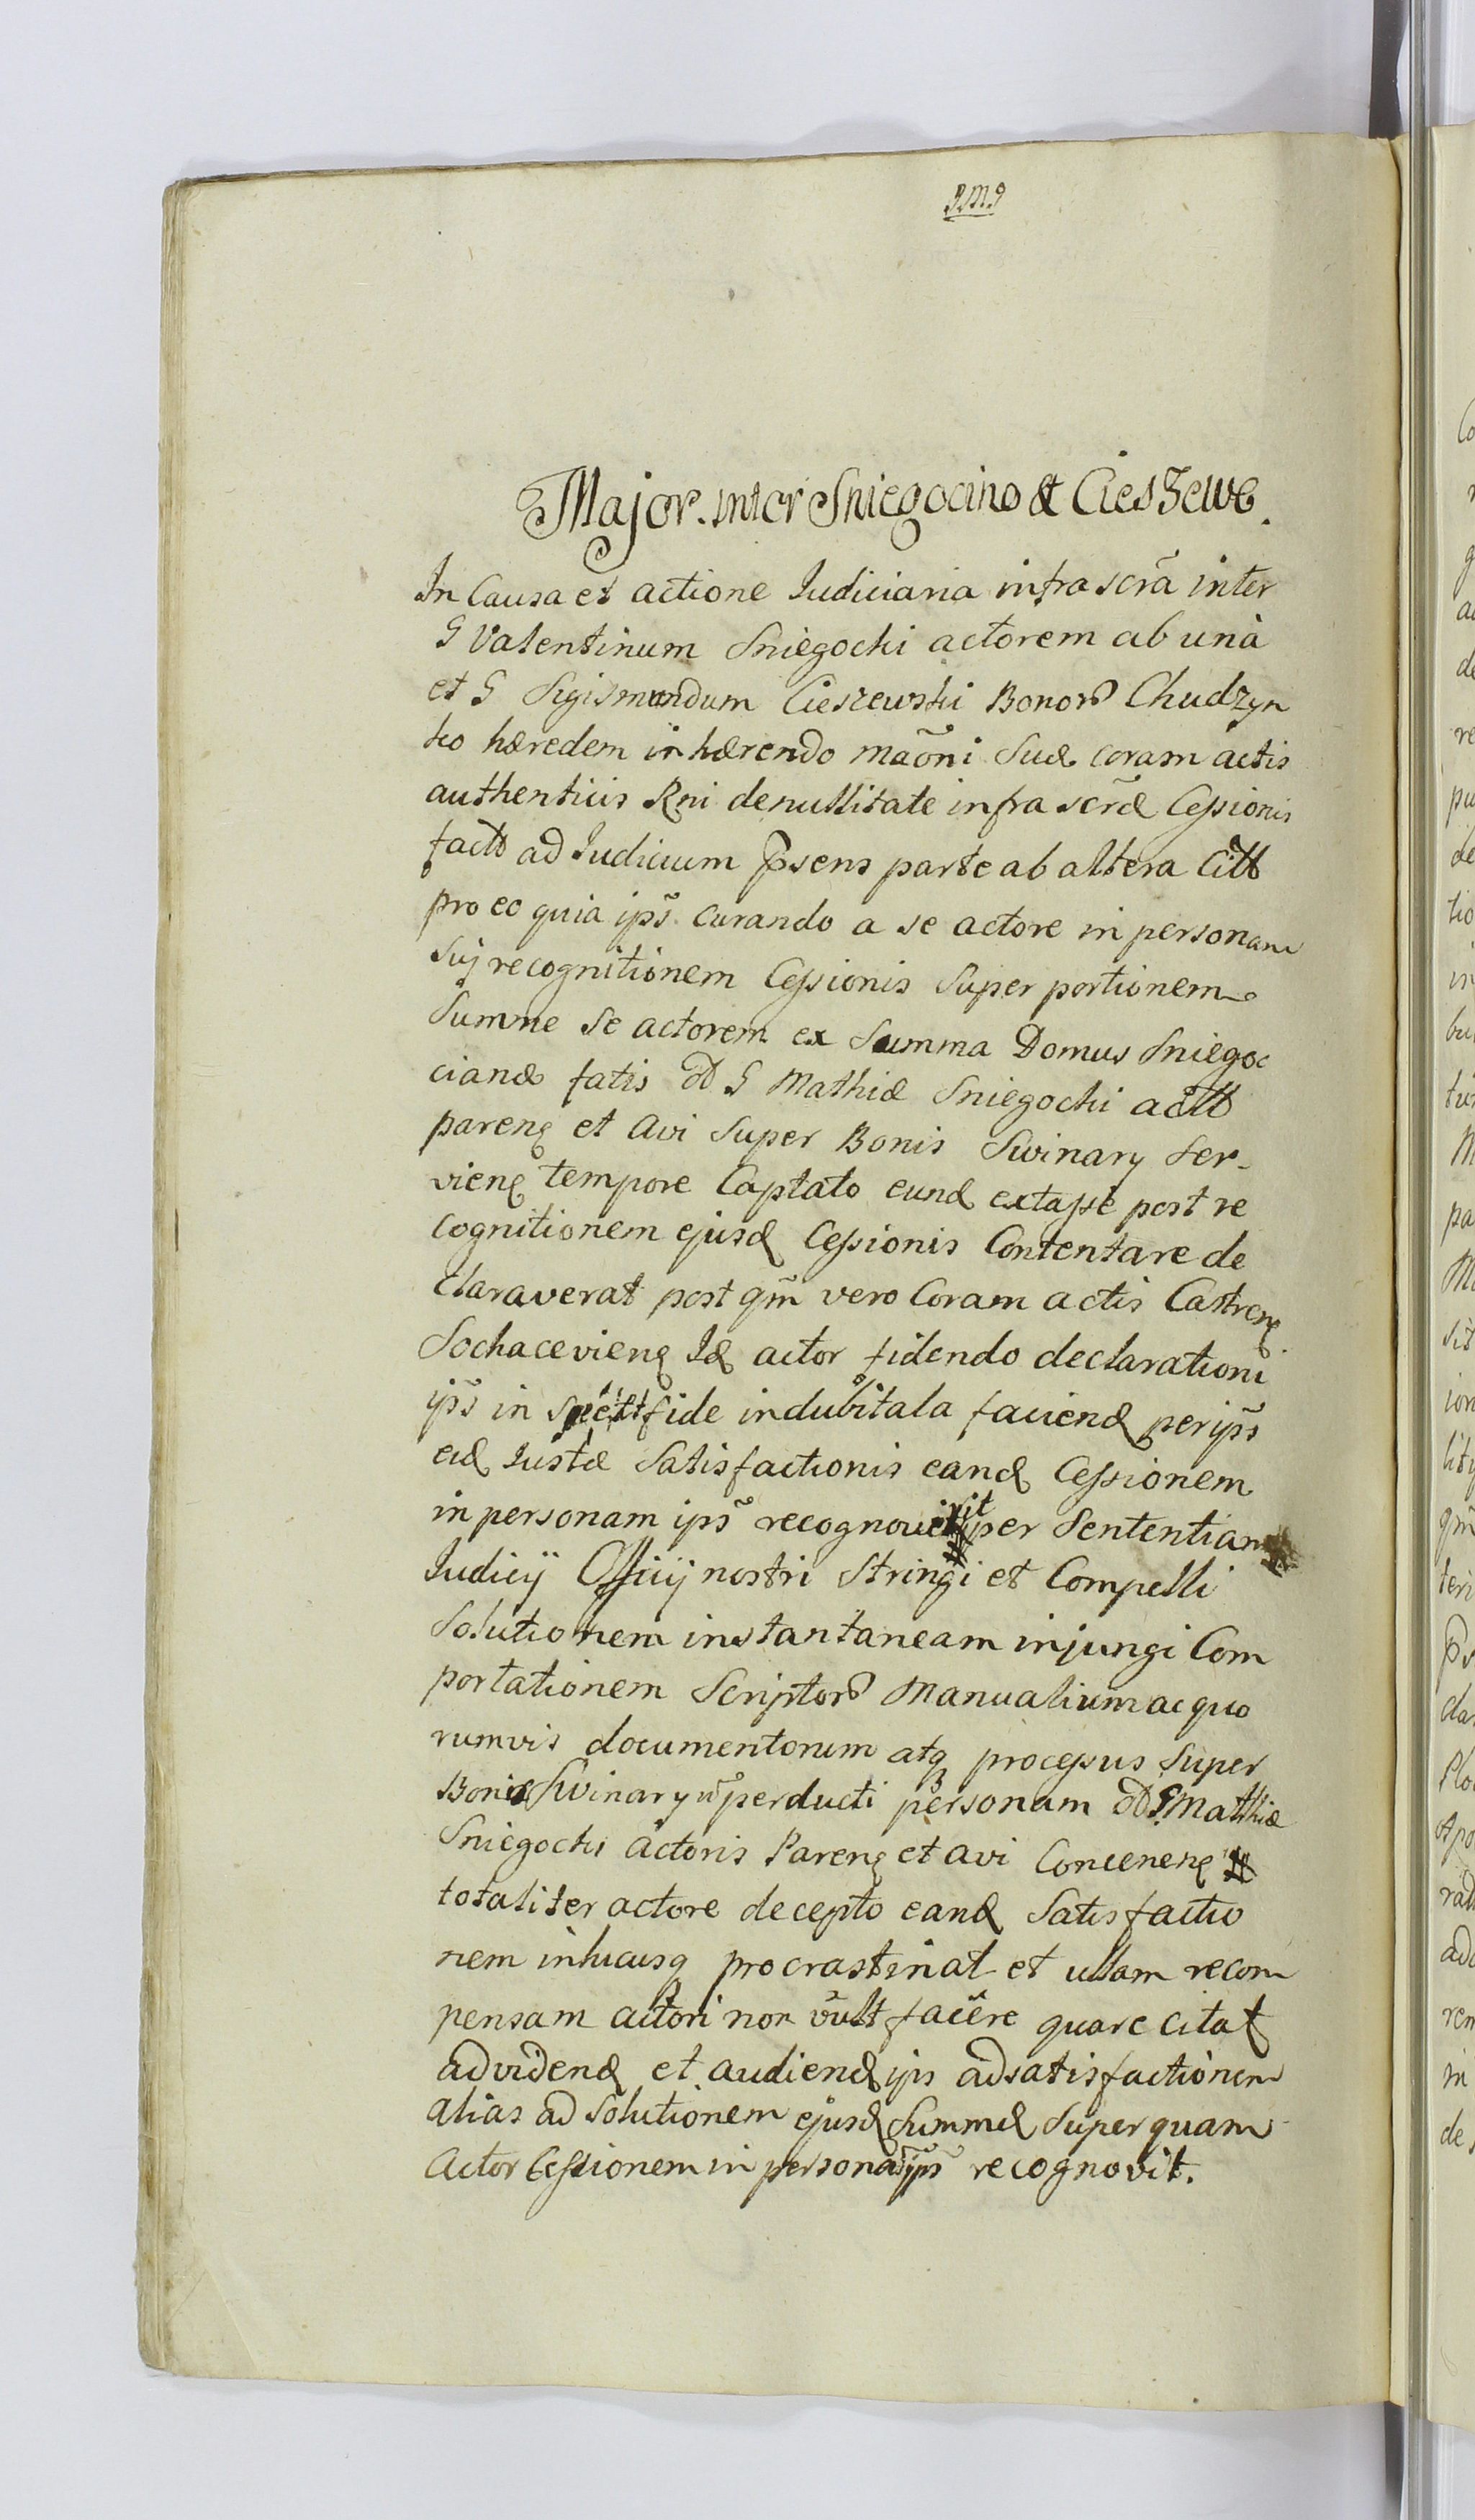 Major. inter Sniegocino & Cieszewo.
In Causa et actione Iudiciaria infra scrã inter
G Valentinum Sniegocki actorem ab unà
et G Sigismundum Cieszewski Bonor Chudzyn
ko hæredem inhærendo mãoni suæ coram actis
authenticis Rni denullitate infra scrãæ Cessionis
ad Iudicium Psens parte ab altera
pro eo quia ips̃ curando a se actore in personam
suj recognitionem Cessionis super portionem
Summe se actorem ex Summa Domus Sniegoc
cianæ fatis G Mathiæ Sniegocki
pareng et Avi super Bonis Swinary ser-
vieng tempore Captato eund extasse post re
cognitionem ejusd Cessionis Contentare de
claraverat post qm̃ vero Coram actis Castreng
Sochacevieng Id actor fidendo declarationi
ips̃ in fide indubitata faciend per ips̃
eid Iustæ Satisfactionis eand Cessionem
in personam ips̃ per Sententiam
Iudicij Officij nostri Stringi et Compelli
Solutionem instantaneam injungi Com
portationem Scriptor Manualium ac quo
rumvis documentorum atq processus super
Bonis Swinary perducti personam G Mathiæ
Sniegocki actoris Pareng et avi Conceneng
totaliter actore decepto eand Satisfactio
nem inhucusq procrastinat et ullam recom
pensam actori non vult facere quare citat
ad vidend et audiend ips ad satisfactionem
alias ad Solutionem ejusd Summæ super quam
Actor Cessionem in personã ips̃ recognovit.